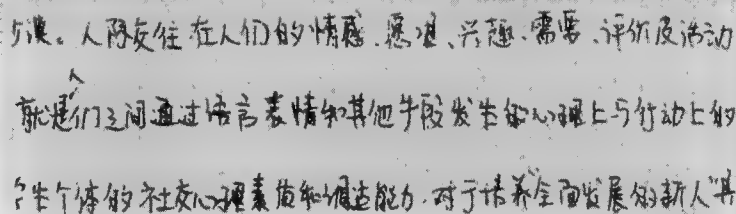 。人际交往在人们的情感、愿望、兴趣、需要、评价及活动
就是人们之间通过语言表情和其他手段发生的心理上与行动上的
个体的社交心理素质和调适能力,对于培养“全面发展的新人”其